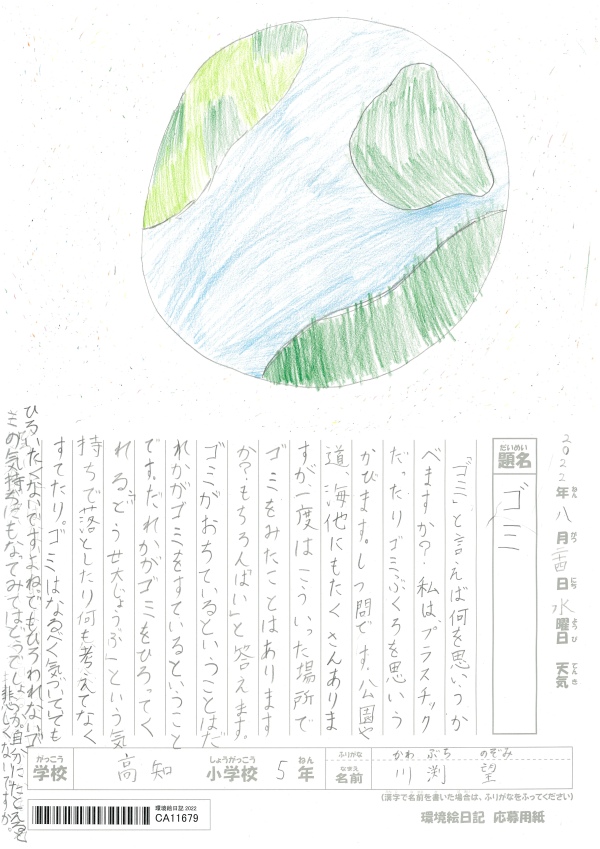 2022年八月二十四日水曜日 天気
ねん がつ にち ようび てんき
だいめい
題名 ゴミ
「ゴミ」と言えば何を思いうか
べますか?私はプラスチック
だったりゴミぶくろを思いう
かびます。しつ問です。公園や
道、海他にもたくさんありま
すが、一度はこういった場所で
ゴミをみたことはあります
か?もちろん「はい」と答えます。
ゴミがおちているということはだ
れかがゴミをすているということ
です。だれかがゴミをひろってく
れる。「どうせ大じょうぶ」という気
持ちで落としたり何も考えてなく
すてたり。ゴミはなるべく気づいてても
ひろいたくないですよね。でもひろわれないゴ
ミの気持ちにもなってみてはどうでしょうか。自分にたとえると
悲しくないですか。
がっこう しょうがっこう ねん
学校 高知 小学校 5年
ふりがな かわ ぶち のぞみ
なまえ
名前 川渕 望
(漢字で名前を書いた場合は、ふりがなをふってください)
環境絵日記 応募用紙
環境絵日記 2022
CA11679